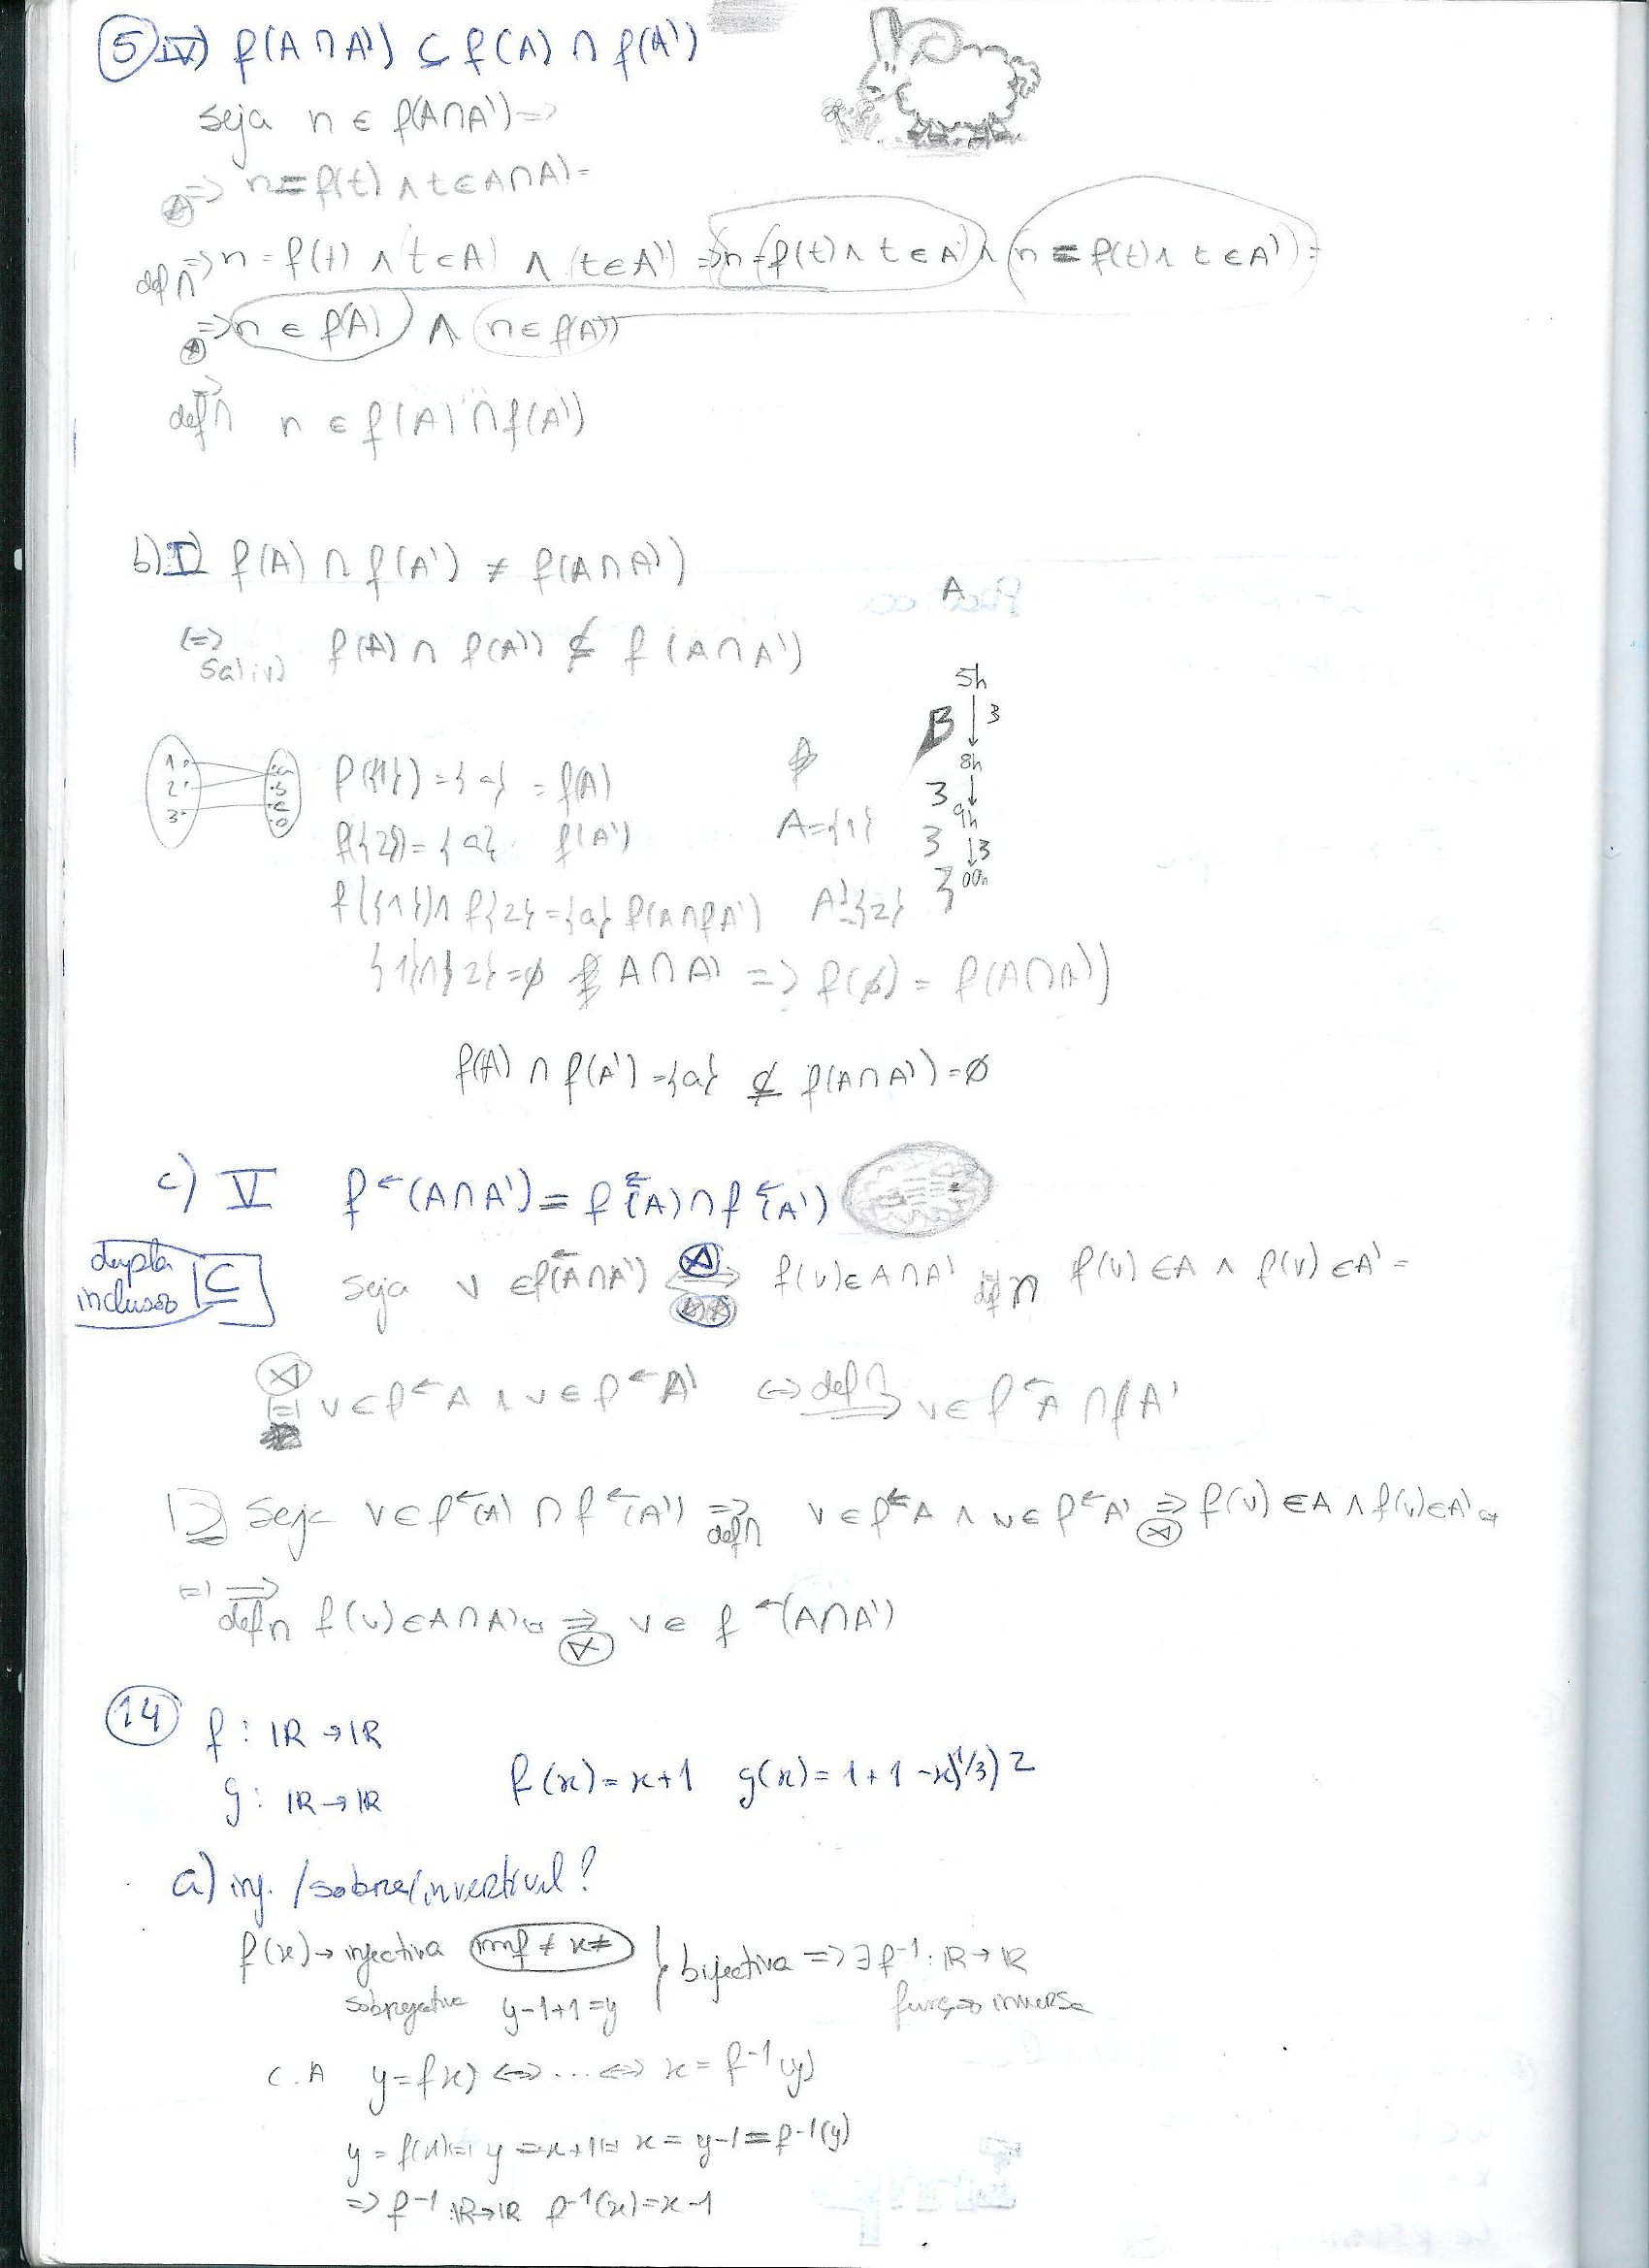 ⑤ IV) f(A ∩ A') ⊆ f(A) ∩ f(A')
seja n ∈ f(A∩A') =>
=> n = f(t) ∧ t ∈ A∩A' =
def ∩ => n = f(t) ∧ (t ∈ A) ∧ (t ∈ A') => (n = f(t) ∧ t ∈ A) ∧ (n = f(t) ∧ t ∈ A') =
=> n ∈ f(A) ∧ n ∈ f(A')
=> def ∩ n ∈ f(A) ∩ f(A')
b) I) f(A) ∩ f(A') ≠ f(A∩A')
A
<=> 5a)iv) f(A) ∩ f(A') ⊈ f(A∩A')
5h
B ↓ 3
8h
1. 2. 3.
f({1}) = {a} = f(A)
3 ↓
9h
f({2}) = {a} f(A') A={1}
3 ↓3
00h
f({1}) ∩ f{2} = {a} f(A∩fA') A'={2} 3
{1}∩{2} = ∅ A∩A' => f(∅) = f(A∩A')
f(A) ∩ f(A') = {a} ⊈ f(A∩A') = ∅
c) V f←(A∩A') = f←(A) ∩ f←(A')
dupla inclusão ⊆
seja v ∈ f←(A∩A') <=> f(v) ∈ A∩A' def ∩ f(v) ∈ A ∧ f(v) ∈ A' =
v ∈ f←A ∧ v ∈ f←A' <=> def ∩ v ∈ f←A ∩ fA'
⊇ Seja v ∈ f←(A) ∩ f←(A') => def ∩ v ∈ f←A ∧ v ∈ f←A' => f(v) ∈ A ∧ f(v) ∈ A'
=> def ∩ f(v) ∈ A∩A' => v ∈ f←(A∩A')
⑭ f : IR → IR
g : IR → IR
f(x) = x+1 g(x) = 1+1-x)^1/3) 2
a) inj. / sobre/invertível?
f(x) → injectiva imf ≠ x≠ } bijectiva => ∃ f⁻¹ : IR → IR
sobrejectiva y-1+1=y função inversa
C.A y = f(x) <=> ... <=> x = f⁻¹(y)
y = f(x) <=> y = x+1 <=> x = y-1 = f⁻¹(y)
=> f⁻¹ : IR→IR f⁻¹(x) = x-1